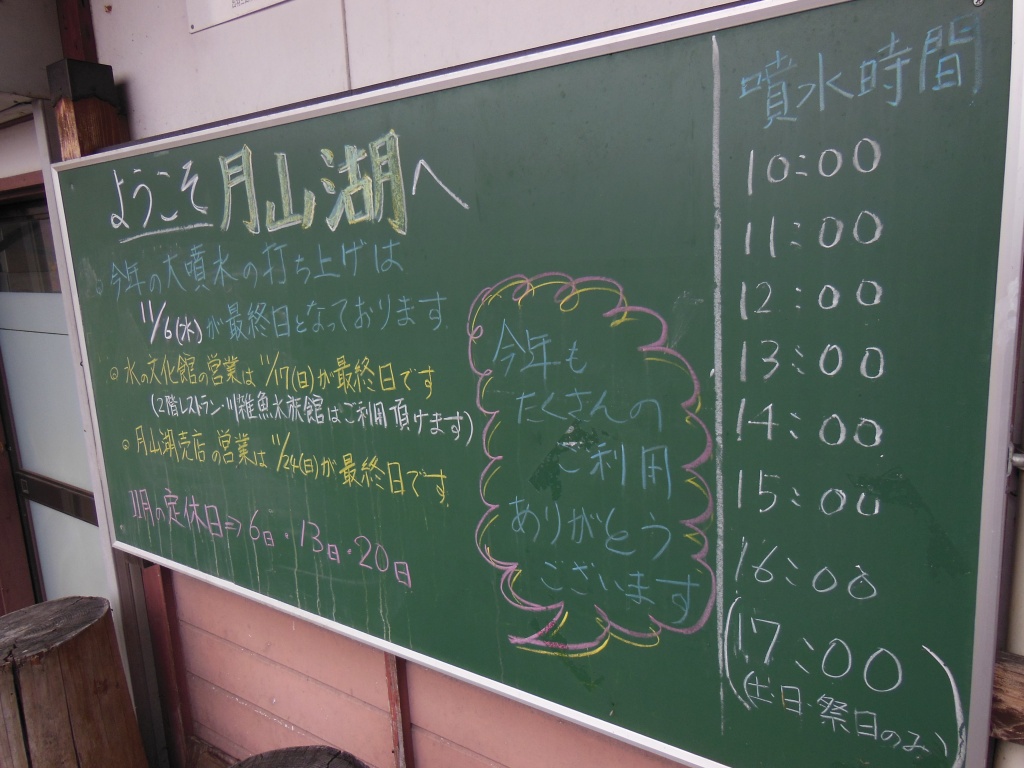 ようこそ月山湖へ
今年の大噴水の打ち上げは
11/6(水)が最終日となっております
◎水の文化館の営業は 11/17(日)が最終日です
(2階レストラン・川雑魚水族館はご利用頂けます)
◎月山湖売店の営業は 11/24(日)が最終日です
11月の定休日⇒6日・13日・20日
今年も
たくさんの
ご利用
ありがとう
ございます
噴水時間
10:00
11:00
12:00
13:00
14:00
15:00
16:00
(17:00
(土・日・祭日のみ)